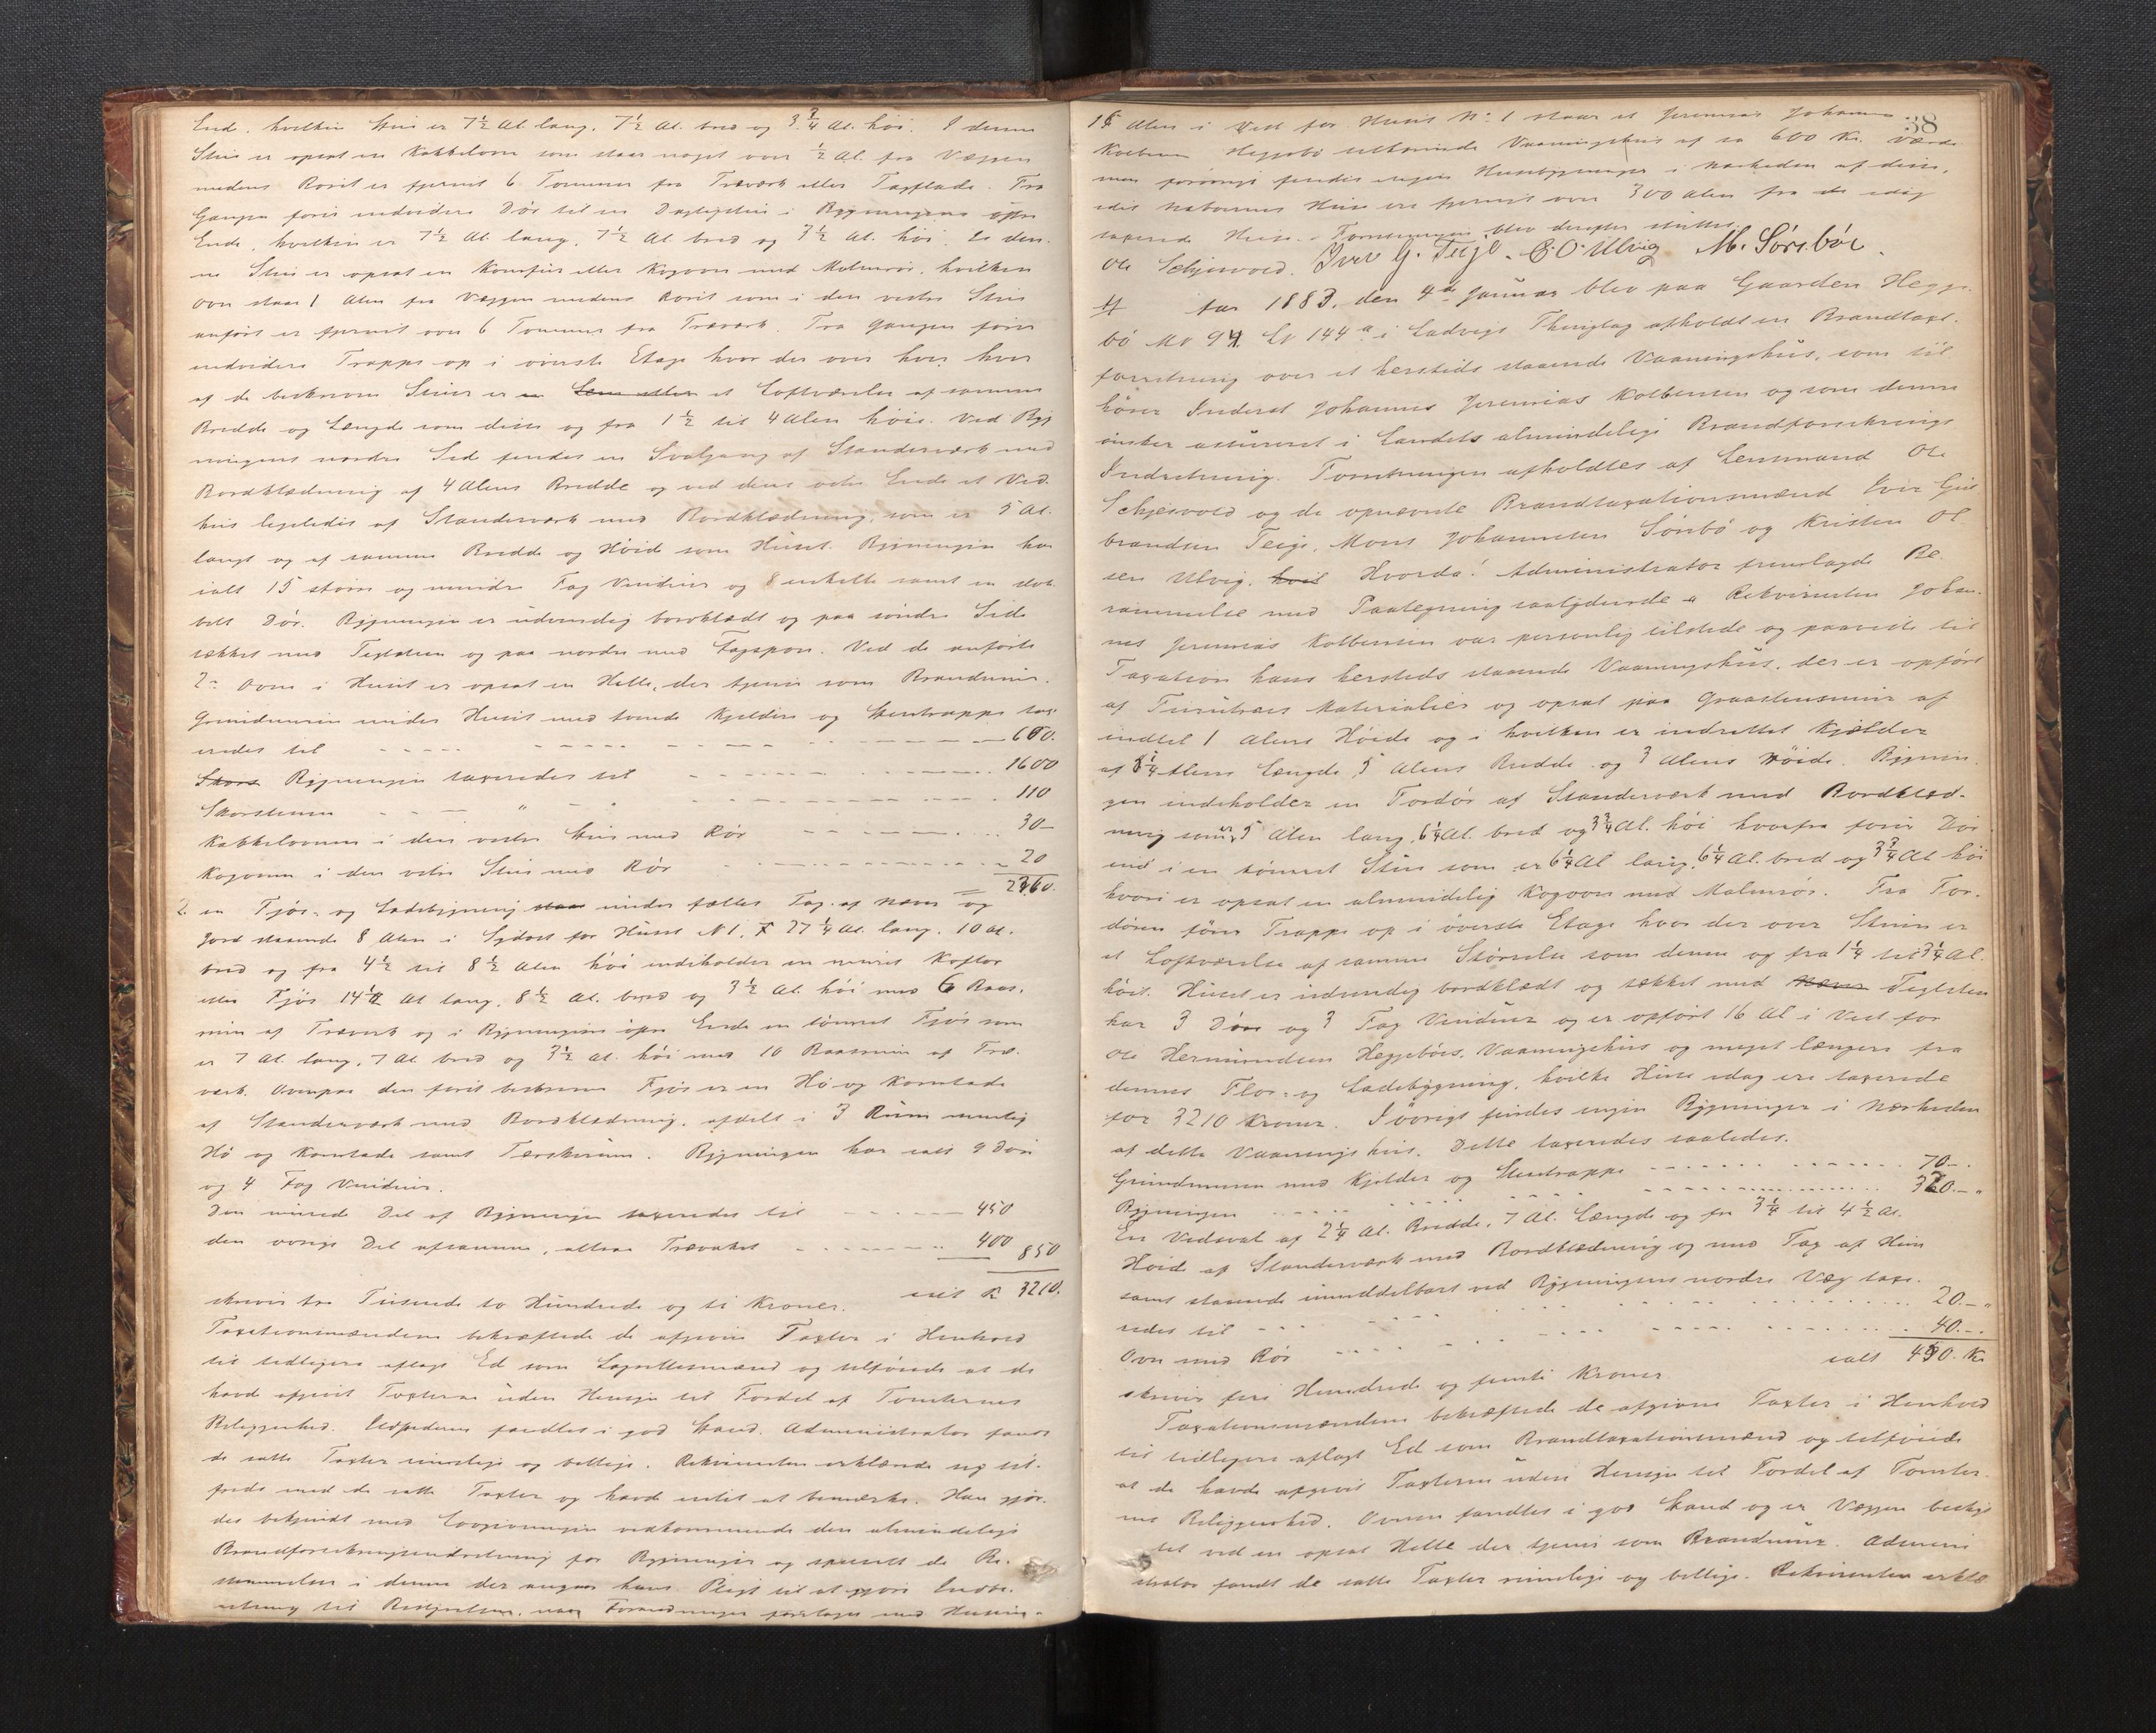 End. hvilken Stue er 7½ Al. lang, 7½ Al. bred og 3¾ Al. høi. I denne
Stue er opsat en Kakkelovn som staar noget over ½ Al. fra Væggen
medens Røret er fjernet 6 Tommer fra Træværk eller Tagflade. Fra
Gangen fører endvidere Dør til en Dagligstue i Bygningens østre
Ende, hvilken er 7½ Al. lang, 7½ Al. bred og 3½ Al. høi. I den-
ne Stue er opsat en Komfur eller Kogovn med Malmrør, hvilken
Ovn staar 1 Alen fra Væggen medens Røret som i den vestre Stue
anført er fjernet over 6 Tommer fra Træværk. Fra Gangen fører
endvidere Trappe op i øverste Etage hvor der over hver
af de beskrevne Stuer er et Loftværelse af samme
Bredde og Længde som disse og fra 1½ til 4 Alen høie. Ved Byg
ningens nordre Side findes en Svalgang af Standerværk med
Bordklædning af 4 Alens Bredde og ved dens østre Ende et Ved-
hus ligeledes af Standerværk med Bordklædning, som er 5 Al.
langt og af samme Bredde og Høide som Huset. Bygningen har
ialt 15 større og mindre Fag Vinduer og 8 enkelte samt en dob-
belt Dør. Bygningen er udvendig bordklædt og paa søndre Side
tækket med Teglsten og paa nordre med Tagspon. Ved de anførte
2de Ovne i Huset er opsat en Helle, der tjener som Brandmur.
Grundmuren under Huset med tvende Kjeldere og Stentrappe tax-
eredes til 600.
Bygningen taxeredes til 1600
Skorstenen " 110
Kakkelovnen i den vestre Stue med Rør 30-
Kogovnen i den østre Stue med Rør 20
= 2360.
2. en Fjøs- og Ladebygning under fælles Tag af Næver og
Jord staaende 8 Alen i Sydost for Huset N 1, 27¼ Al. lang, 10 Al.
bred og fra 4½ til 8½ Alen høi indeholder en muret Koflor
eller Fjøs 14½ Al lang, 8½ Al. bred og 3½ Al. høi med 6 Baas-
rum af Træværk og i Bygningens østre Ende en tømret Fjøs som
er 7 Al. lang, 7 Al bred og 3½ Al. høi med 10 Baasrum af Træ-
værk. Ovenpaa den først beskrevne Fjøs er en Hø og Kornlade
af Standerværk med Bordklædning, afdelt i 3 Rum nemlig
Hø og Kornlade samt Tærskerum. Bygningen har ialt 9 Døre
og 4 Fag Vinduer.
Den murede Del af Bygningen taxeredes til 450
den øvrige Del afsamme, altsaa Træværket 400 850
ialt Kr 3210.
skriver tre Tusende to Hundrede og ti Kroner.
Taxationsmændene bekræftede de afgivne Taxter i Henhold
til tidligere aflagt Ed som Lagrettesmænd og tilføiede at de
havde afgivet Taxterne uden Hensyn til Fordel af Tomternes
Beliggenhed. Ildstederne fandtes i god Stand. Administrator fandt
de satte Taxter rimelige og billige. Rekvirenten erklærede sig til-
freds med de satte Taxter og havde intet at bemærke. Han gjor-
des bekjendt med Lovgivningen vedkommende den almindelige
Brandforsikringsindretning for Bygninger og specielt de Be-
stemmelser i denne der angaar hans Pligt til at gjøre Indbe-
retning til Bestyrelsen, naar Forandringer foretages med Husene
38
16 Alen i Vest for Huset No 1 staar et Jeremias Johannes
Kolbensen Heggebø tilhørende Vaaningshus af ca 600 Kr. Værdi
men forøvrigt findes ingen Husebygninger i nærheden af disse,
idet Naboernes Huse ere fjernet over 300 Alen fra de idag
taxerede Huse. Forretningen blev derefter sluttet.
Ole Schjesvold. Iver G. Teige. C. O. Ulvig M. Sørebøe.
Aar 1883. den 4de Januar blev paa Gaarden Hegge-
bø No 94 Lb 144a i Ladvigs Thinglag afholdt en Brandtaxt-
forretning over et hersteds staaende Vaaningshus, som til-
hører Inderst Johannes Jeremias Kolbensen og som denne
ønsker assureret i Landets almindelige Brandforsikrings
Indretning. Forretningen afholdtes af Lensmand Ole
Schjesvold og de opnævnte Brandtaxationsmænd Iver Gul
brandsen Teige, Mons Johannesen Sørebø og Kristen Ol
sen Ulvig. Hvorda! Administrator fremlagde Be-
rammelse med Paategning saalydende. Rekvirenten Johan-
nes Jeremias Kolbensen var personlig tilstede og paaviste til
Taxation hans hersteds staaende Vaaningshus, der er opført
af Furutræs Materialier og opsat paa Graastensmur af
indtil 1 Alens Høide og i hvilken er indrettet Kjælder
af 8¼ Alens Længde, 5 Alens Bredde og 3 Alens Høide. Bygnin-
gen indeholder en Fordør af Standerværk med Bordklæd-
ning som er 5 Alen lang, 6¼ Al. bred og 3¾ Al. høi hvorfra fører Dør
ind i en tømret Stue som er 6¼ Al lang, 6¼ Al. bred og 3¾ Al høi
hvori er opsat en almindelig Kogovn med Malmrør. Fra For-
døren fører Trappe op i øverste Etage hvor der over Stuen er
et Loftværelse af samme Størrelse som denne og fra 1¼ til 3¼ Al.
høit. Huset er udvendig bordklædt og tækket med Teglsten
har 3 Døre og 3 Fag Vinduer og er opført 16 Al i Vest for
Ole Hermundsen Heggebøes Vaaningshus og meget længere fra
dennes Flor- og Ladebygning, hvilke Huse idag ere taxerede
for 3210 Kroner. Iøvrigt findes ingen Bygninger i Nærheden
af dette Vaaningshus. Dette taxeredes saaledes.
Grundmuren med Kjelder og Stentrappe 70-
Bygningen 320.-"
En Vedsval af 2¼ Al. Bredde, 7 Al. Længde og fra 3¼ til 4½ Al.
Høide af Standerværk med Bordklædning og med Tag af
samt staaende umiddelbart ved Bygningens nordre Væg taxe-
redes til 20.-"
Ovn med Rør 40.-
ialt 450. Kr
skriver fire Hundrede og femti Kroner
Taxationsmændene bekræftede de afgivne Taxter i Henhold
til tidligere aflagt Ed som Brandtaxationsmænd og tilføiede
at de havde afgivet Taxterne uden Hensyn til Fordel af Tomter-
nes Beliggenhed. Ovnen fandtes i god Stand og er Væggen beskyt
tet ved en opsat Helle der tjener som Brandmur. Admini
strator fandt de satte Taxter rimelige og billige. Rekvirenten erklæ